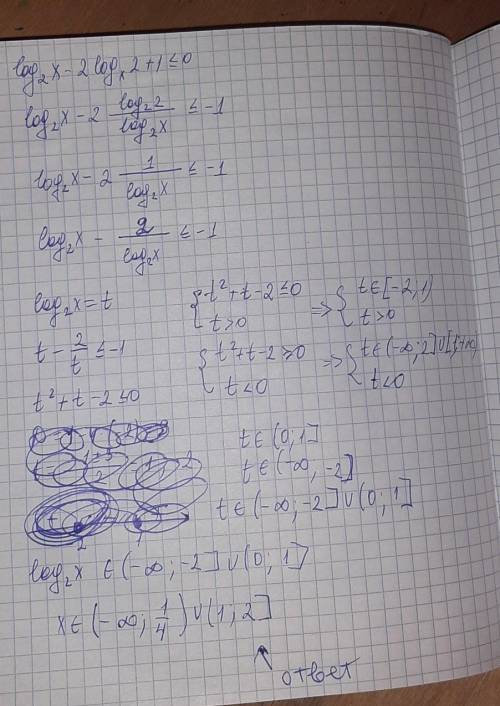 log₂x - 2 logₓ2 + 1 ≤ 0
log₂x - 2 log₂2/log₂x ≤ -1
log₂x - 2 1/log₂x ≤ -1
log₂x - 2/log₂x ≤ -1
log₂x = t
t - 2/t ≤ -1
t² + t - 2 ≤ 0
{ t² + t - 2 ≤ 0 => { t ∈ [-2, 1)
t > 0 t > 0
{ t² + t - 2 ≥ 0 => { t ∈ (-∞; 2] ∪ [1; +∞)
t < 0 t < 0
t ∈ (0; 1]
t ∈ (-∞, -2]
t ∈ (-∞, -2] ∪ (0; 1]
log₂x ∈ (-∞; -2] ∪ (0; 1]
x ∈ (-∞; 1/4) ∪ (1; 2]
ответ